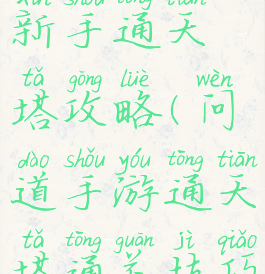 xīn shǒu tōng tiān
新手通天
tǎ gōng lüè wèn
塔攻略(问
dào shǒu yóu tōng tiān
道手游通天
tǎ tōng guān jì qiǎo
塔通关技巧